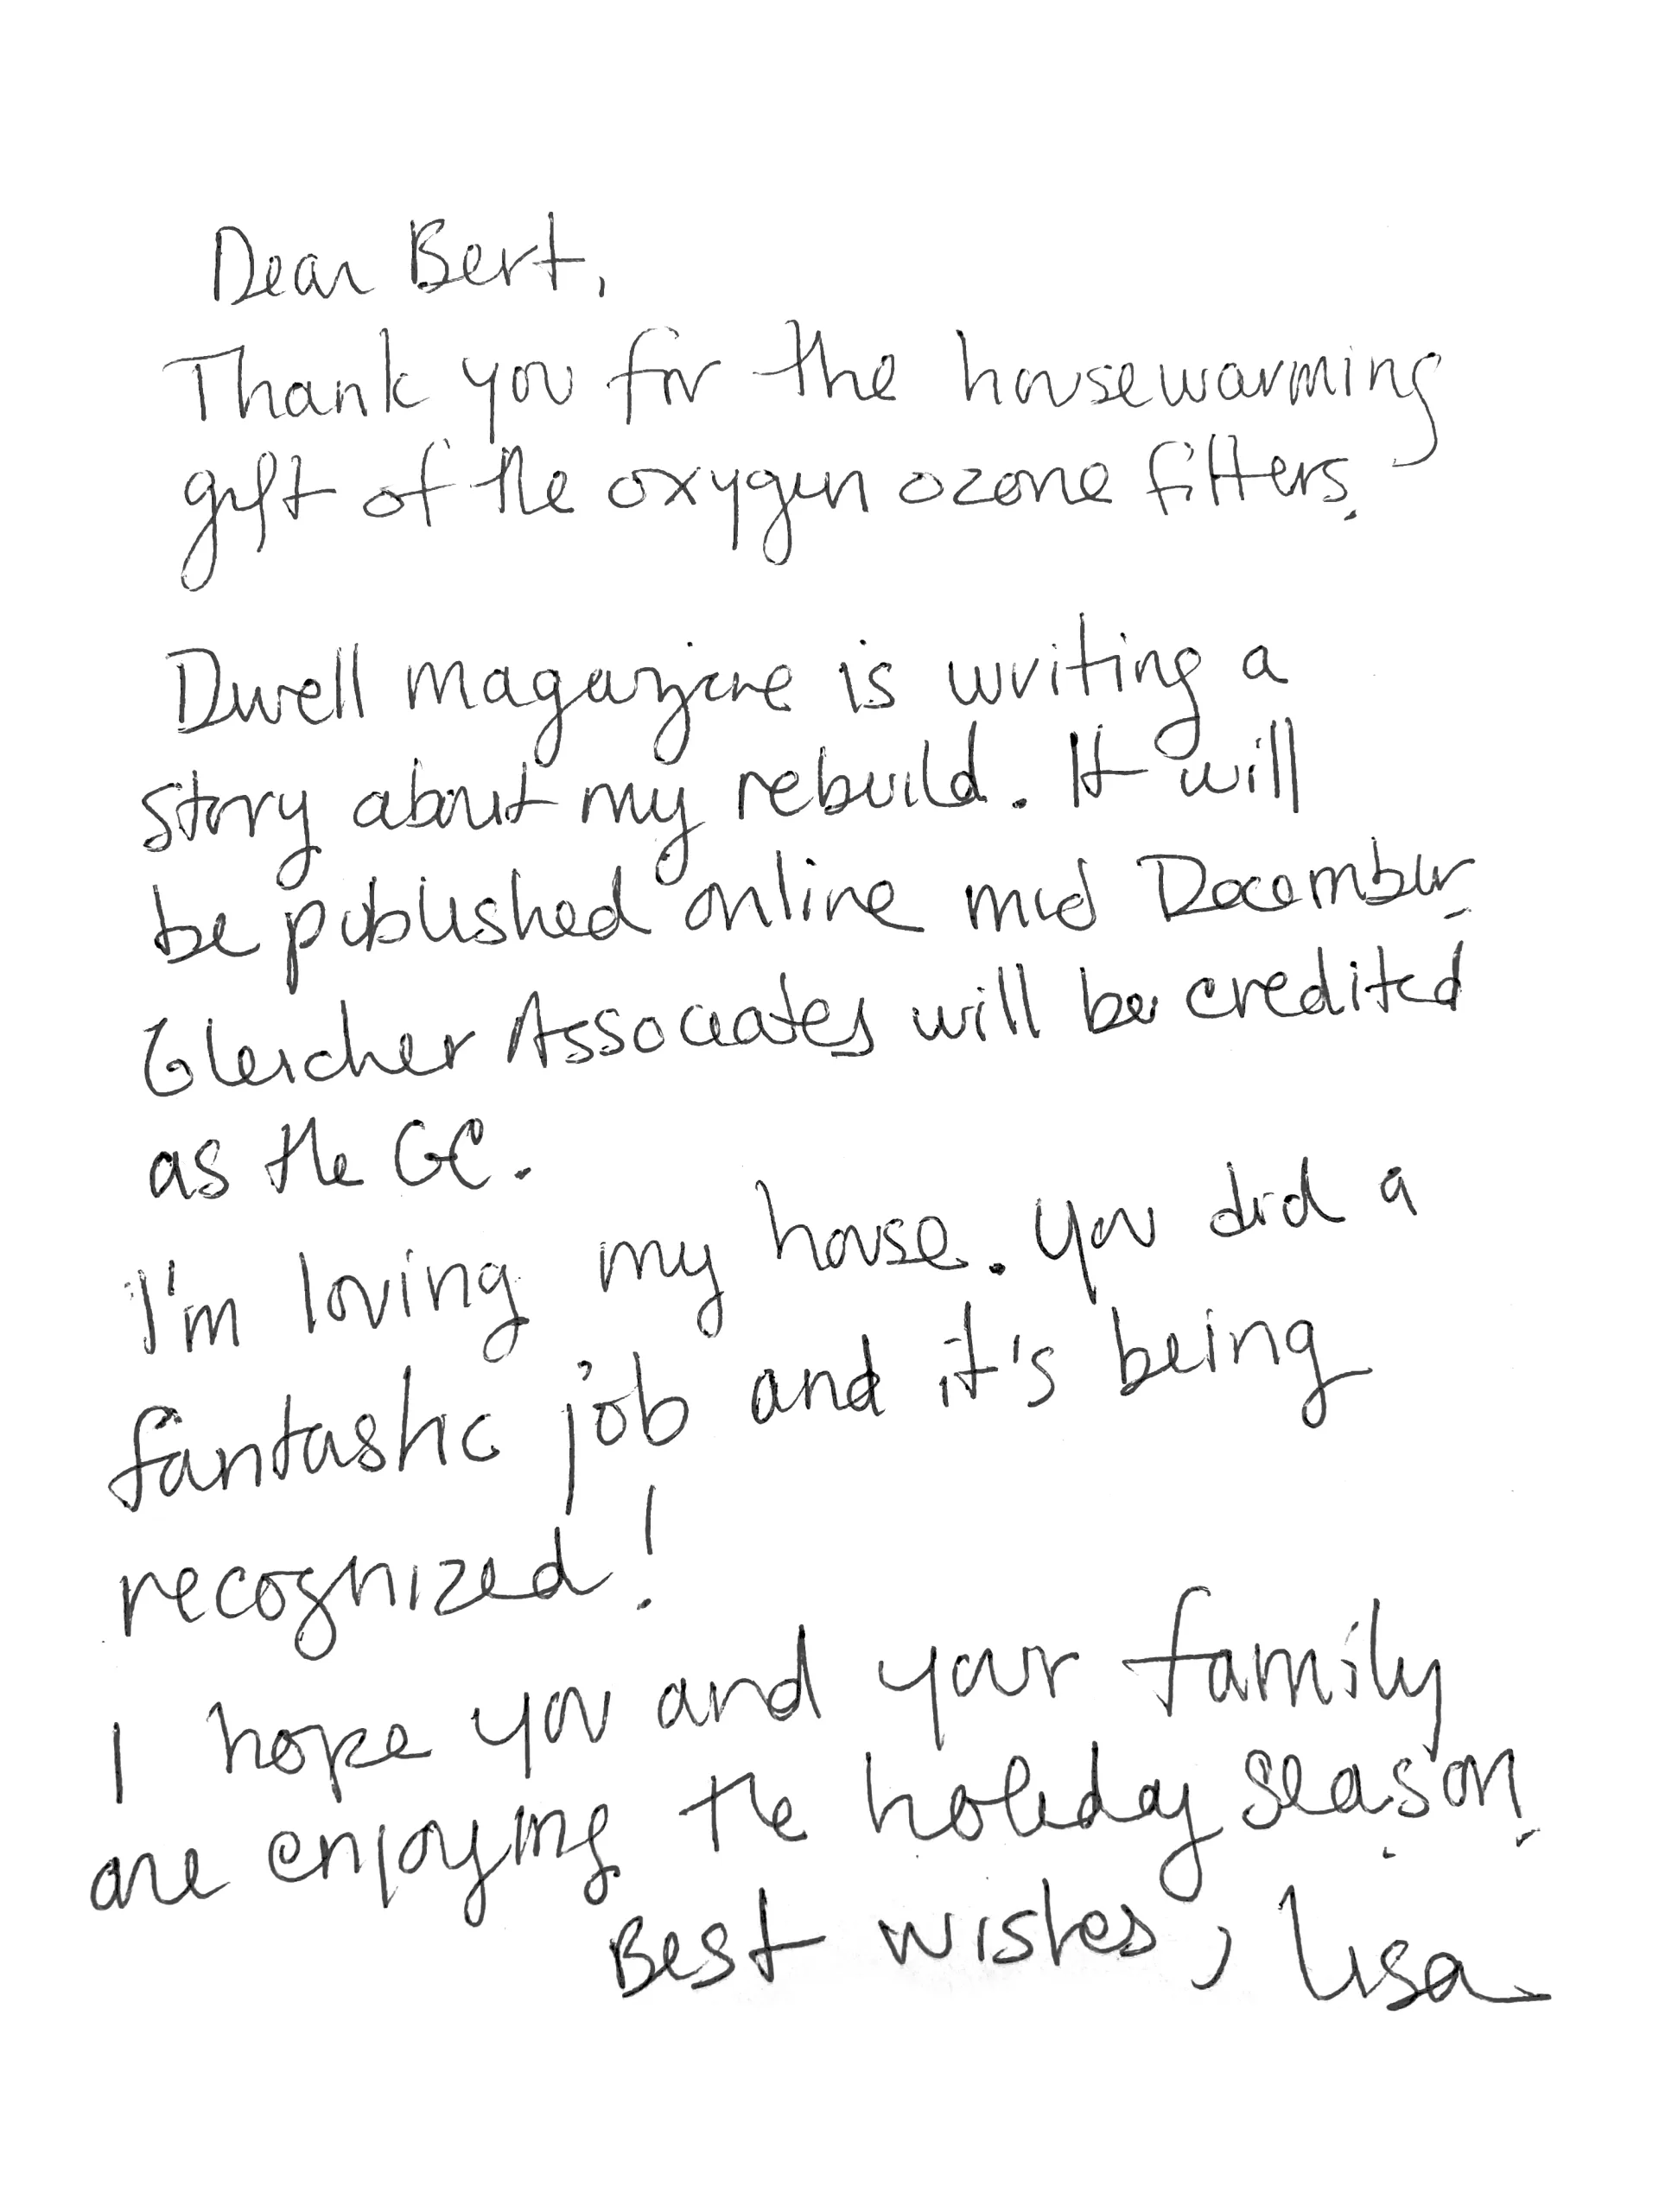 Dear Bert,
Thank you for the housewarming
gift of the oxygen ozone filters.
Dwell magazine is writing a
story about my rebuild. It will
be published online mid December.
Gleicher Associates will be credited
as the GC.
I'm loving my house. You did a
fantastic job and it's being
recognized!
I hope you and your family
are enjoying the holiday season.
Best wishes, Lisa